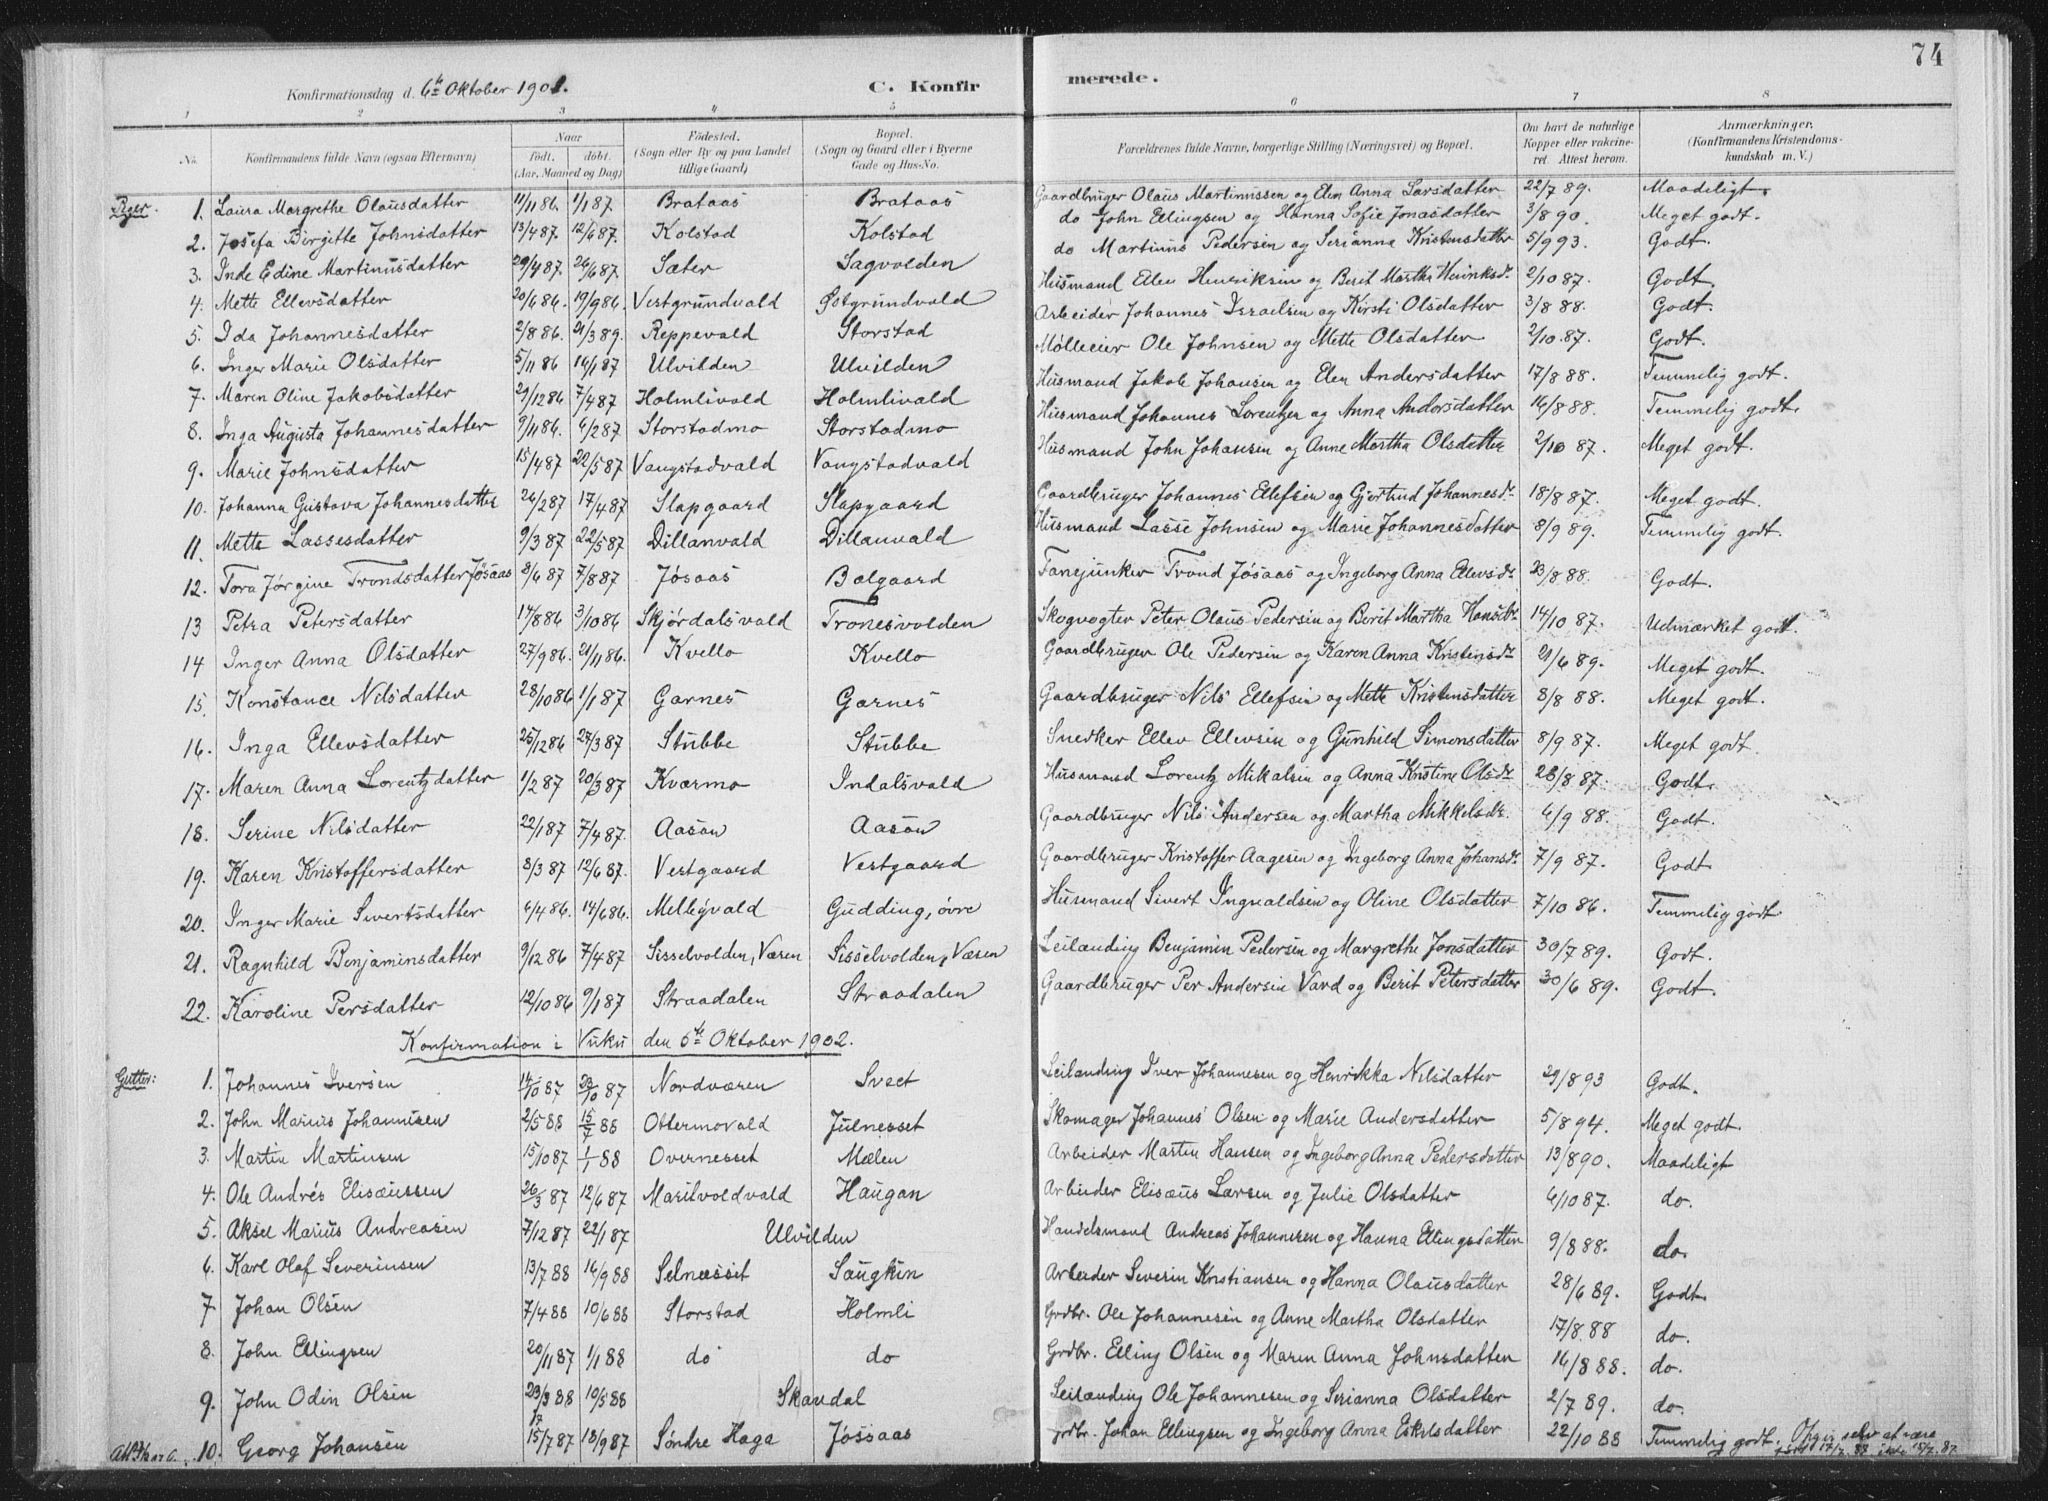 74
Konfirmationsdag d. 6te Oktober 1901.
C. Konfirmerede.
1 2 3 4 5 6 7 8
No. Konfirmandens fulde Navn (ogsaa Efternavn) Naar født. døbt. (Aar, Maaned og Dag) Fødested. (Sogn eller By og paa Landet tillige Gaard) Bopæl. (Sogn og Gaard eller i Byerne Gade og Hus-No. Forældrenes fulde Navne, borgerlige Stilling (Næringsvei) og Bopæl. Om havt de naturlige Kopper eller vakcineret. Attest herom. Anmærkninger. (Konfirmandens Kristendomskundskab m. V.)
Piger.
1. Laura Margrethe Olausdatter 11/11 86. 1/1 87. Brataas Brataas Gaardbruger Olaus Martinussen og Elen Anna Larsdatter 22/7 89. Maadeligt.
2. Josefa Birgitte Johnsdatter 13/4 87. 12/6 87. Kolstad Kolstad do John Ellingsen og Hanna Sofie Jonasdatter 3/8 90. Meget godt.
3. Inde Edine Martinusdatter 29/4 87. 26/6 87. Sæter Sagvolden do Martinus Pedersen og Serianna Kristensdatter 5/9 93. Godt.
4. Mette Ellevsdatter 20/6 86. 19/9 86. Vestgrundvald Østgrundvald Husmand Ellev Henriksen og Berit Martha Henriksdr 2/10 87. Godt.
5. Ida Johannesdatter 2/8 86. 21/3 89. Reppevald Storstad Arbeider Johannes Israelsen og Kirsti Olsdatter 3/8 88. Godt.
6. Inger Marie Olsdatter 5/11 86 16/1 87 Ulvilden Ulvilden Mølleeier Ole Johnsen og Mette Olsdatter 2/10 87. Godt.
7. Maren Oline Jakobsdatter 29/12 86 7/4 87 Holmlivald Holmlivald Husmand Jakob Johansen og Elen Andersdatter 17/8 88. Temmelig godt.
8. Inga Augusta Johannesdatter 9/11 86. 6/2 87 Storstadmo Storstadmo Husmand Johannes Lorentzen og Anna Andersdatter 16/8 88. Temmelig godt.
9. Marie Johnsdatter 15/4 87 22/5 87 Vangstadvald Vangstadvald Husmand John Johansen og Anne Martha Olsdatter 2/10 87. Meget godt.
10. Johanna Gustava Johannesdatter 26/2 87 17/4 87 Slapgaard Slapgaard Gaardbruger Johannes Ellefsen og Gjertrud Johannesdr 18/8 87. Meget godt.
11. Mette Lassesdatter 9/3 87 22/5 87 Dillanvald Dillanvald Husmand Lasse Johnsen og Marie Johannesdatter 8/9 89. Temmelig godt.
12. Tora Jørgine Trondsdatter Jøsaas 8/6 87 7/8 87 Jøsaas Bælgaard Fanejunker Trond Jøsaas og Ingeborg Anna Ellevsdr 23/8 88. Godt.
13 Petra Petersdatter 17/8 86 3/10 86 Skjørdalsvald Tronesvolden Skogvogter Peter Olaus Pedersen og Berit Martha Hansdr 14/10 87. Udmærket godt.
14 Inger Anna Olsdatter 27/9 86. 21/11 86. Kvello Kvello Gaardbruger Ole Pedersen og Karen Anna Kristensdr 21/6 89. Meget godt.
15. Konstance Nilsdatter 28/10 86 1/1 87 Garnes Garnes Gaardbruger Nils Ellefsen og Mette Kristensdatter 8/8 88. Meget godt.
16. Inga Ellevsdatter 25/12 86 27/3 87 Stubbe Stubbe Snedker Ellev Ellevsen og Gunhild Simonsdatter 8/9 87. Meget godt.
17. Maren Anna Lorentzdatter 1/2 87 20/3 87 Kværmo Indalsvald Husmand Lorentz Mikalsen og Anna Kristine Olsdr 28/8 87. Godt.
18. Serine Nilsdatter 22/1 87 7/4 87. Aason Aason Gaardbruger Nils Andersen og Martha Mikkelsdr. 6/9 88. Godt.
19. Karen Kristoffersdatter 8/3 87 12/6 87. Vestgaard Vestgaard Gaardbruger Kristoffer Aagesen og Ingeborg Anna Johansdr 7/9 87. Godt
20. Inger Marie Sivertsdatter 6/4 86. 14/6 86. Mellbyvald Gudding, øvre Husmand Sivert Ingvaldsen og Oline Olsdatter 7/10 86. Temmelig godt
21. Ragnhild Benjaminsdatter 9/12 86 7/4 87 Sisselvolden, Væren Sisselvolden, Væren Leilænding Benjamin Pedersen og Margrethe Jonsdatter 30/7 89. Godt.
22. Karoline Persdatter 12/10 86 9/1 87 Straadalen Straadalen Gaardbruger Per Andersen Vard og Berit Petersdatter 30/6 89. Godt.
Konfirmation i Vuku den 5te Oktober 1902.
Gutter:
1. Johannes Iversen 14/10 87 23/10 87 Nordværen Sveet Leilænding Iver Johannesen og Henrikka Nilsdatter 29/8 93 Godt.
2. John Marius Johannesen 2/5 88 15/7 88 Ottermovald Julnesset Skomager Johannes Olsen og Marie Andersdatter 5/8 94. Meget godt.
3. Martin Martinsen 15/10 87 1/1 88 Overnesset Mælen Arbeider Martin Hansen og Ingeborg Anna Pedersdatter 13/8 90. Maadeligt
4. Ole Andrés Elisæussen 26/3 87 12/6 87 Marilvoldvald Haugan Arbeider Elisæus Larsen og Julie Olsdatter 6/10 87. do.
5. Aksel Marius Andreasen 7/12 87 22/1 87 Ulvilden Handelsmand Andreas Johannesen og Hanna Ellingsdatter 9/8 88. do.
6. Karl Olaf Severinsen 13/7 88 16/9 88 Selnesset Saugkin Arbeider Severin Kristiansen og Hanna Olausdatter 28/6 89. Godt.
7 Johan Olsen 7/4 88 10/6 88 Storstad Holmli Grdbr. Ole Johannesen og Anne Martha Olsdatter 17/8 88 do.
8. John Ellingsen 20/11 87 1/1 88 do do Grdbr. Elling Olsen og Maren Anna Johnsdatter 16/8 88. do.
9. John Odin Olsen 23/3 88 10/5 88 Skaudal Leilænding Ole Johannesen og Serianna Olsdatter 2/7 89. do.
10. Georg Johansen 17 15/7 87 18/9 87 Søndre Haga Jøssaas Grdbr. Johan Ellingsen og Ingeborg Anna Eskilsdatter 22/10 88 Temmelig godt. Opgir selv at være født 17/7 87 ikke 15/7 87.